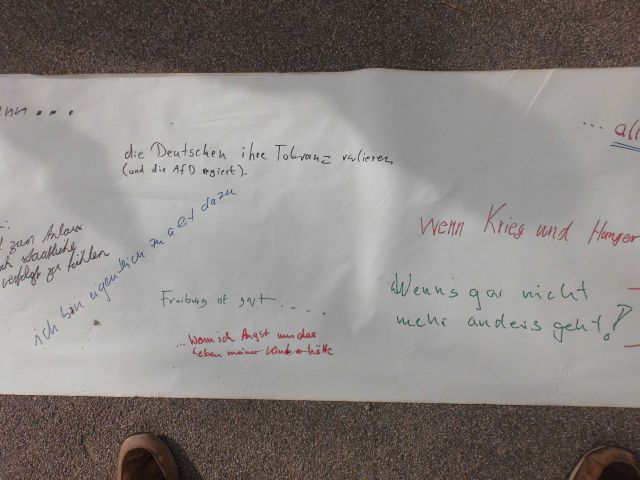 ... all
die Deutschen ihre Toleranz verlieren
(und die AfD regiert).
zum Anlass
staatliche
verfolgt zu fühlen
ich bin eigentlich zu alt dazu
Wenn Krieg und Hunger
Freiburg ist gut ....
Wenns gar nicht
mehr anders geht!?
... Wenn ich Angst um das
Leben meiner Kinder hätte